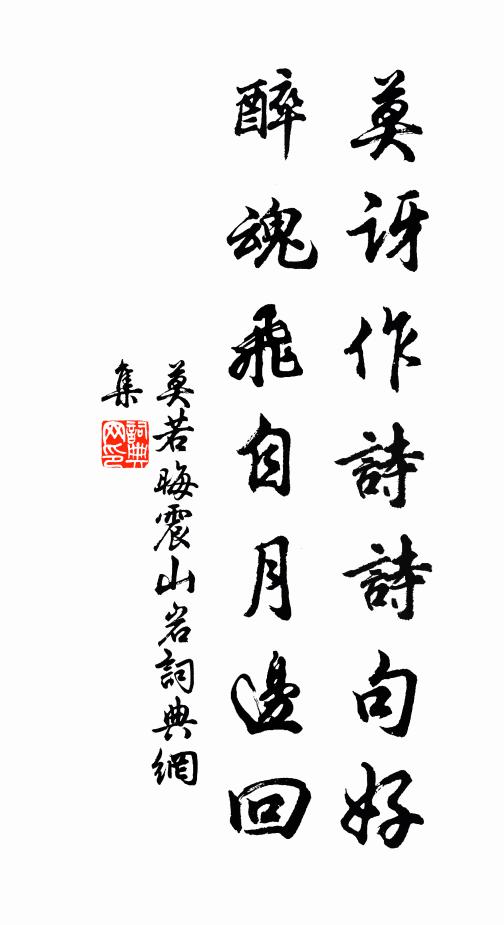 莫訝作詩詩句好
醉魂飛自月邊回
莫若晦震山岩詞典網
集
詞典
网印